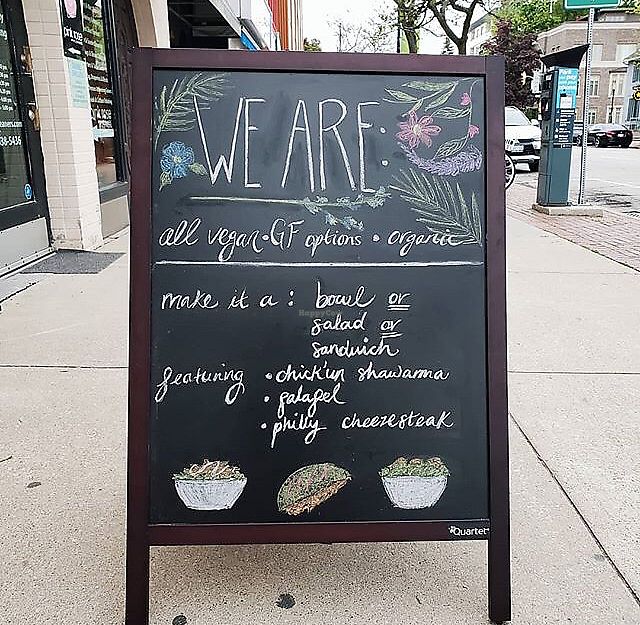 WE ARE:
all vegan • GF options • organic
make it a : bowl or
salad or
sandwich
featuring • chick'un shawarma
• falafel
• philly cheezesteak
HappyCow
Quartet